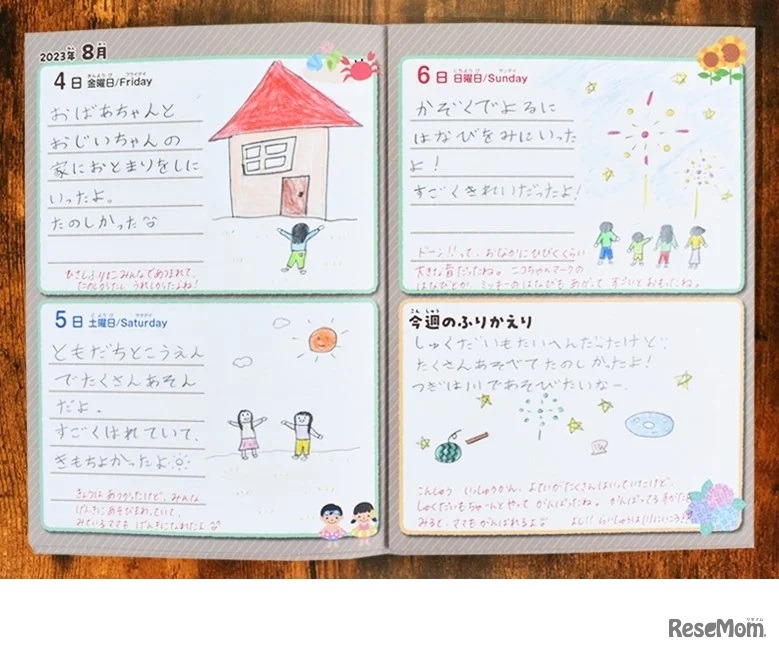 2023年 8月
4日 金曜日/Friday
きんようび フライデイ
おばあちゃんと
おじいちゃんの
家におとまりをしに
いったよ。
たのしかった
ひさしぶりにみんなであつまれて、
たのしかったし うれしかったよね!
5日 土曜日/Saturday
どようび サタデイ
ともだちとこうえん
でたくさんあそん
だよ。
すごくはれていて、
きもちよかったよ
きょうは あつかったけど、みんな
げんきにあそびまわっていて、
みているママも げんきになれたよ
6日 日曜日/Sunday
にちようび サンデイ
かぞくでよるに
はなびをみにいった
よ!
すごくきれいだったよ!
ドーン!!って、おなかにひびくくらい
大きな音だったね。ニコちゃんマークの
はなびとか、ミッキーのはなびも あがって すごいとおもったね。
今週のふりかえり
こんしゅう
しゅくだいもたいへんだったけど
たくさんあそべて たのしかったよ!
つぎは川であそびたいなー。
こんしゅう いっしゅうかん、よていがたくさんはいっていたけど、
しゅくだいもちゃーんとやって がんばったね。がんばってる
みると、ママもがんばれるよ
よし!! らいしゅうは川にいこう!
ReseMom.
リセマム